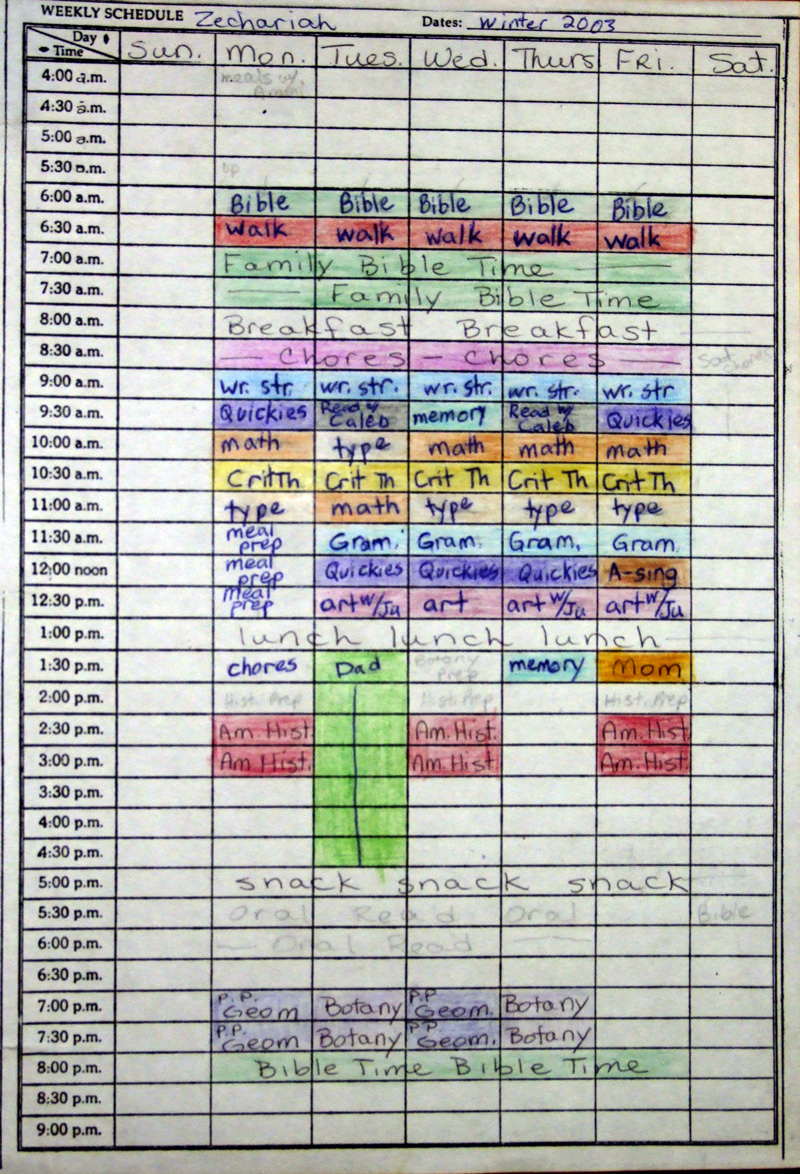 WEEKLY SCHEDULE Zechariah Dates: Winter 2003
Day
Time Sun. Mon. Tues. Wed. Thurs Fri. Sat.
4:00 a.m. meals w/
4:30 a.m.
5:00 a.m.
5:30 a.m. up
6:00 a.m. Bible Bible Bible Bible Bible
6:30 a.m. walk walk walk walk walk
7:00 a.m. Family Bible Time
7:30 a.m. Family Bible Time
8:00 a.m. Breakfast Breakfast
8:30 a.m. — Chores — Chores —
9:00 a.m. wr. str. wr. str. wr. str. wr. str. wr. str
9:30 a.m. Quickies Read w/ Caleb memory Read w/ Caleb Quickies
10:00 a.m. math type math math math
10:30 a.m. Crit Th Crit Th Crit Th Crit Th Crit Th
11:00 a.m. type math type type type
11:30 a.m. meal prep Gram. Gram. Gram. Gram
12:00 noon meal prep Quickies Quickies Quickies A-sing
12:30 p.m. meal prep art w/Ju art art w/Ju art w/Ju
1:00 p.m. lunch lunch lunch
1:30 p.m. chores Dad Botany Prep memory Mom
2:00 p.m. Hist. Prep Hist. Prep Hist. Prep
2:30 p.m. Am. Hist. Am. Hist Am. Hist.
3:00 p.m. Am. Hist. Am. Hist Am. Hist.
3:30 p.m.
4:00 p.m.
4:30 p.m.
5:00 p.m. snack snack snack
5:30 p.m. Oral Read Oral Bible
6:00 p.m. — Oral Read —
6:30 p.m.
7:00 p.m. P.P. Geom Botany P.P. Geom. Botany
7:30 p.m. P.P. Geom Botany P.P. Geom. Botany
8:00 p.m. Bible Time Bible Time
8:30 p.m.
9:00 p.m.